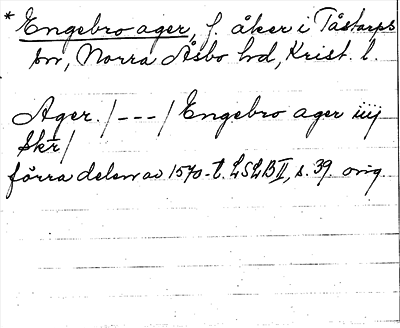 * Engebro ager, f. åker i Tåstarps
sn, Norra Åsbo hd, Krist. l.
Ager. /---/ Engebro ager iiij
Skr/
förra delen av 1570-t. LSLB II, s. 39. orig.